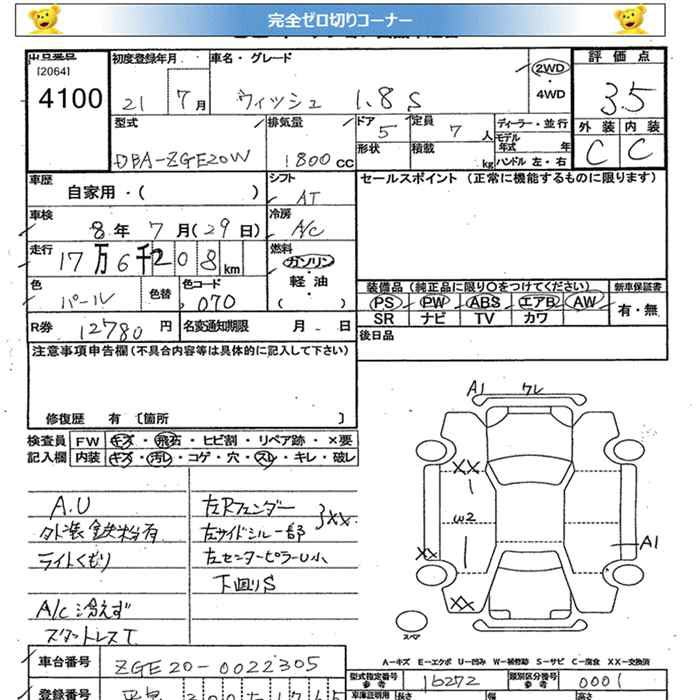 完全ゼロ切りコーナー
[2064]
4100
初度登録年月 車名・グレード
21 7月 ウィッシュ 1.8S
2WD
・
4WD
評価点
3.5
外装 内装
C C
型式 排気量 ドア 定員 ディーラー・並行
DBA-ZGE20W 1800CC 5 7人 モデル年式 年
形状 積載 kg ハンドル 左・右
車歴 シフト セールスポイント (正常に機能するものに限ります)
自家用・( ) AT
車検 冷房
8年 7月(29日) A/C
走行 燃料
17万6千208km ガソリン
・
軽油
・
( )
色 色替 色コード
パール 070
装備品(純正品に限り〇をつけてください) 新車保証書
PS PW ABS エアB AW 有・無
SR ナビ TV カワ
R券 12780円 名変通知期限 月 日
後日品
注意事項申告欄(不具合内容等は具体的に記入して下さい)
修復歴 有 〔箇所 〕
検査員 FW キズ・飛石・ヒビ割・リペア跡・×要
記入欄 内装 キズ・汚レ・コゲ・穴・スレ・キレ・破レ
A.U
外装鉄粉有
ライトくもり
A/C冷えず
スタットレスT
左Rフェンダー
左サイドシル一部 }XX
左センターピラーU小
下回りS
A1 ワレ
XX
W2
XX
A1
XX
スペア
A-キズ E-エクボ U-凹み W-補修跡 S-サビ C-腐食 XX-交換済
車台番号 ZGE20-0022305
型式指定番号 16272 類別区分番号 0001
参考 参考
登録番号
車庫証明用 長さ 幅 高さ